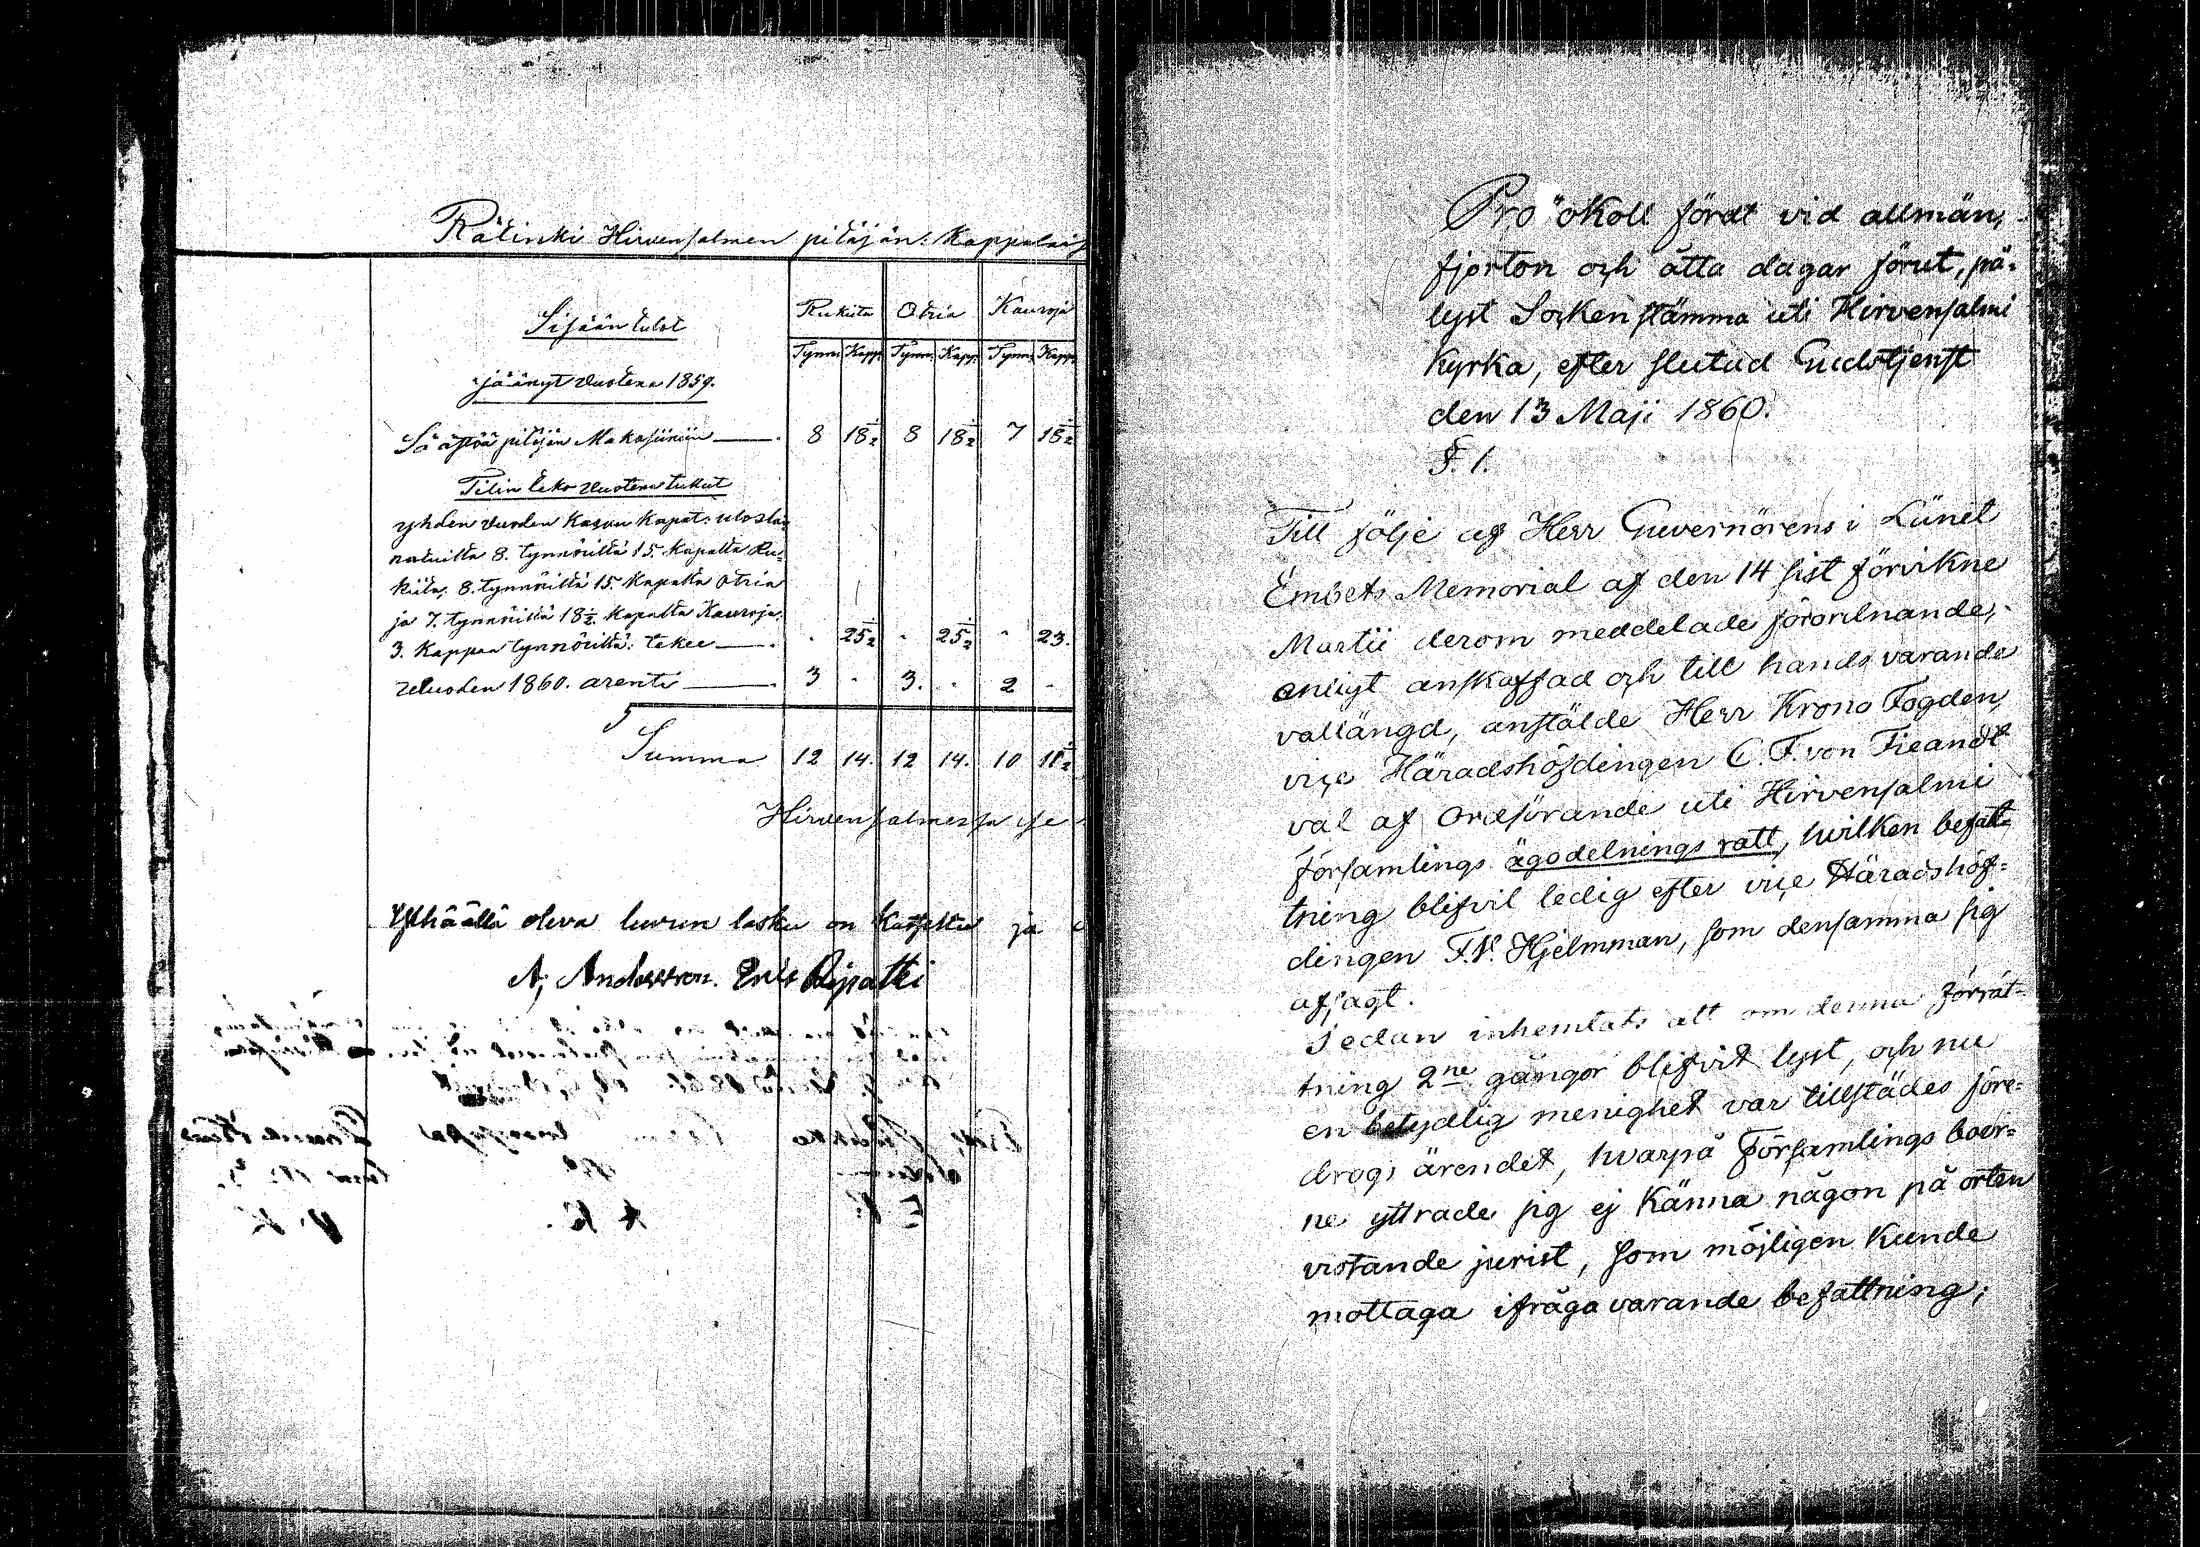 Räkinki Hirvensalmen pitäjän: Kappalais
Sisään tulot
Rukiita Otria Kauroja
Tynn: Kapp: Tynn: Kapp: Tynn: Kapp:
jäänyt vuotena 1859.
Säästöä pitäjän Makasiiniin — 8 18½ 8 18½ 7 18½
Tilin teko vuotena tullut
yhden vuoden kasvu kapat: ulostai
natuilta 8. tynnöriltä 15. kapalta Ru-
kiita, 8. tynnöriltä 15. kapalta otria
ja 7. tynnöriltä 18½ kapalta Kauroja,
3. kappaa tynnöriltä: tekee — . " 25½ " 25½ " 23.
Vuoden 1860. arenti — . 3 - 3. - 2 -
Summa 12 14. 12 14. 10 11½
Hirvensalmessa se
Ylhäällä oleva luvun lasku on katsottu ja
A, Andersson. Eric Ripatti
Pro okoll fördt vid allmän,
fjorton och åtta dagar förut, på-
lyst Sockenstämma uti Hirvensalmi
Kyrka, efter slutad Gudstjenst
den 13 Maji 1860.
§. 1.
Till följe af Herr Guvernörens i Länet
Embets Memorial af den 14 sist förvikne
Martii derom meddelade förordnande,
enligt anskaffad och till hands varande
vallängd, anstälde Herr Krono Fogden,
vice Häradshöfdingen C. F. von Fieandt
val af Ordförande uti Hirvensalmi
församlings ägodelnings rätt, hvilken befatt-
tning blifvit ledig efter vice Häradshöf-
dingen F. V. Hjelmman, som densamma sig
afsagt.
Sedan inhemtats att om denna förrät-
tning 2ne gångor blifvit lyst, och nu
en betydlig menighet var tillstädes före-
drogs ärendet, hvarpå Församlings boer-
ne yttrade sig ej känna någon på orten
vistande jurist, som möjligen kunde
mottaga ifrågavarande befattning;